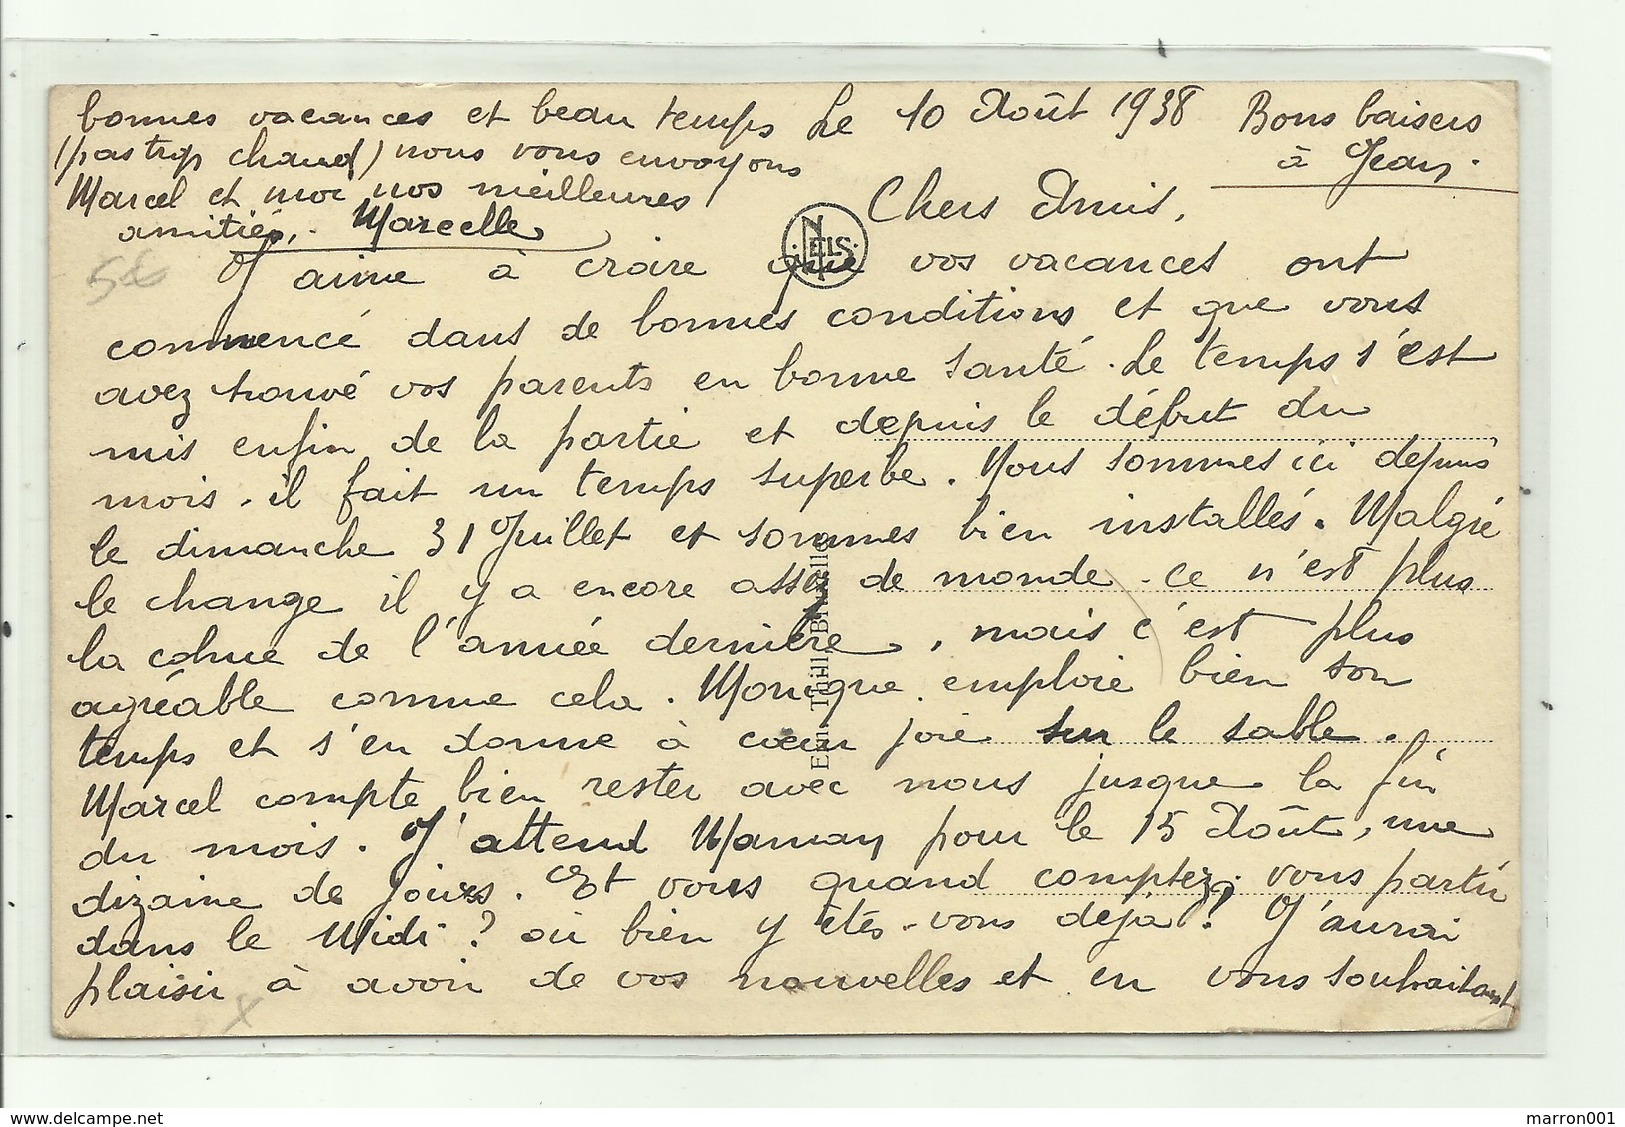 Le 10 Août 1938
Bons baisers
à Jean.
Chers Amis,
J'aime à croire que vos vacances ont
commencé dans de bonnes conditions et que vous
avez trouvé vos parents en bonne santé. Le temps s'est
mis enfin de la partie et depuis le début du
mois. il fait un temps superbe. Nous sommes ici depuis
le dimanche 31 Juillet et sommes bien installés. Malgré
le change il y a encore assez de monde. ce n'est plus
la cohue de l'année dernière, mais c'est plus
agréable comme cela. Monique emploie bien son
temps et s'en donne à cœur joie sur le sable.
Marcel compte bien rester avec nous jusque la fin
du mois. J'attend Maman pour le 15 Août, une
dizaine de jours. Et vous quand comptez-vous partir
dans le Midi? où bien y êtes-vous déjà? J'aurai
plaisir à avoir de vos nouvelles et en vous souhaitant
bonnes vacances et beau temps
(pas trop chaud) nous vous envoyons
Marcel et moi nos meilleures
amitiés. Marcelle
NELS
Ern. Thill, Bruxelles
marron001